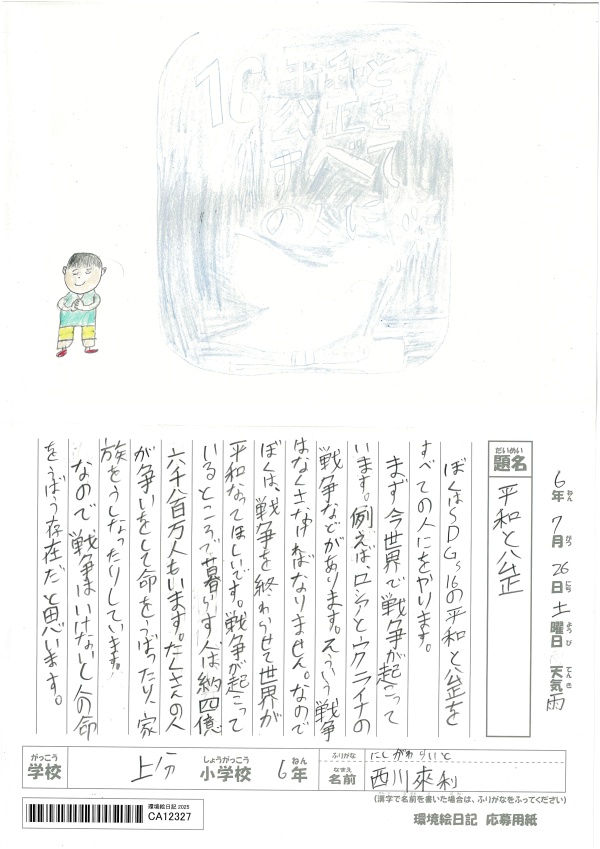 16 平和と
公正を
すべて
の人に
6年 7月 26日 土曜日 天気 雨
ねん がつ にち ようび てんき
だいめい
題名
平和と公正
ぼくはSDGs16の平和と公正を
すべての人にをやります。
まず今世界で戦争が起こって
います。例えば、ロシアとウクライナの
戦争などがあります。そういう戦争
はなくさなければなりません。なので
ぼくは、戦争を終わらせて世界が
平和なってほしいです。戦争が起こって
いるところで暮らす人は約四億
六千八百万人もいます。たくさんの人
が争いをして命をうばったり、家
族をうしなったりしています。
なので戦争はいけないと人の命
をうばう存在だと思います。
がっこう しょうがっこう ねん
学校 上分 小学校 6年
ふりがな にしがわらいと
なまえ
名前 西川來利
(漢字で名前を書いた場合は、ふりがなをふってください)
環境絵日記 2025
CA12327
環境絵日記 応募用紙